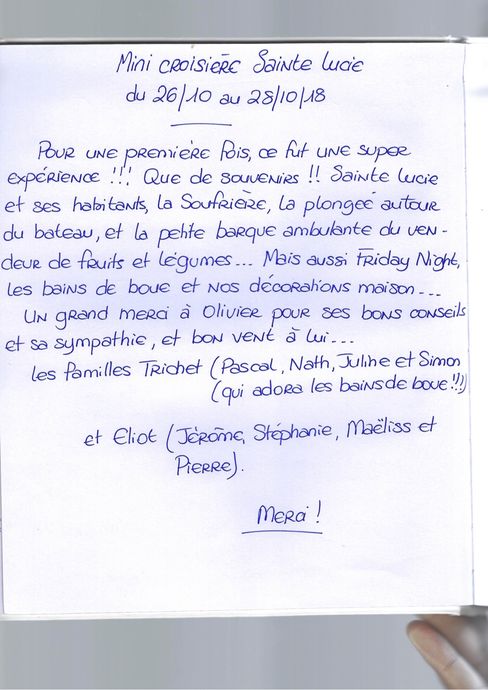 Mini croisière Sainte Lucie
du 26/10 au 28/10/18
Pour une première fois, ce fut une super
expérience !!! Que de souvenirs !! Sainte Lucie
et ses habitants, la Soufrière, la plongée autour
du bateau, et la petite barque ambulante du ven-
deur de fruits et légumes... Mais aussi Friday Night,
les bains de boue et nos décorations maison...
Un grand merci à Olivier pour ses bons conseils
et sa sympathie, et bon vent à lui...
les familles Trichet (Pascal, Nath, Juline et Simon
(qui adora les bains de boue !!!)
et Eliot (Jérôme, Stéphanie, Maëliss et
Pierre).
Merci !